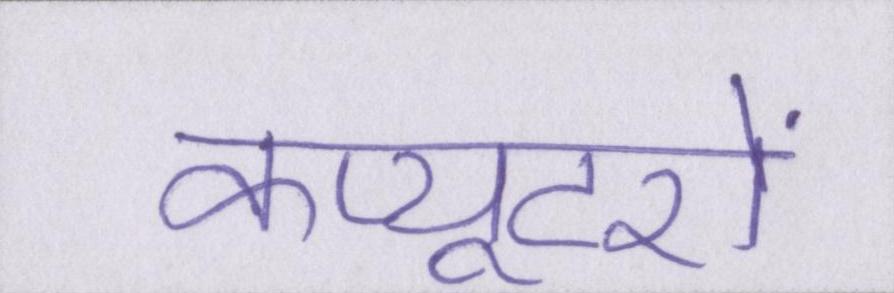 कप्यूटरों